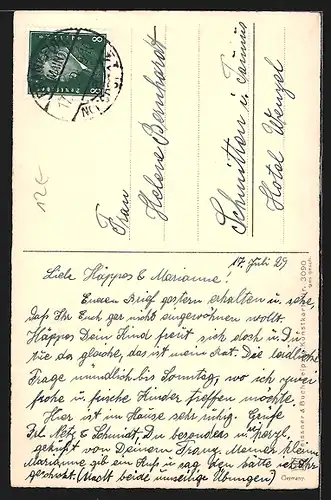 12€
Frau
Helene Bernhardt
Schmitten i. Taunus
Hotel Wenzel
17. Juli 29
Liebe Häppes & Marianne!
Euren Brief gestern erhalten u. sehe,
daß Ihr Euch gar nicht eingewöhnen wollt.
Häppes Dein Kind freut sich doch u. Du
tue das gleiche, das ist mein Rat. Die leidliche
Frage mündlich bis Sonntag, wo ich zwei
frohe u. frische Kinder treffen möchte.
Hier ist im Hause sehr ruhig. Grüße
Frl. Netz, & Schmidt, Du besonders u. herzl.
geküßt von Deinem Franz. Meiner kleinen
Marianne gib ein Kuß u. sag
(Macht beide Übungen)
3090
Germany.